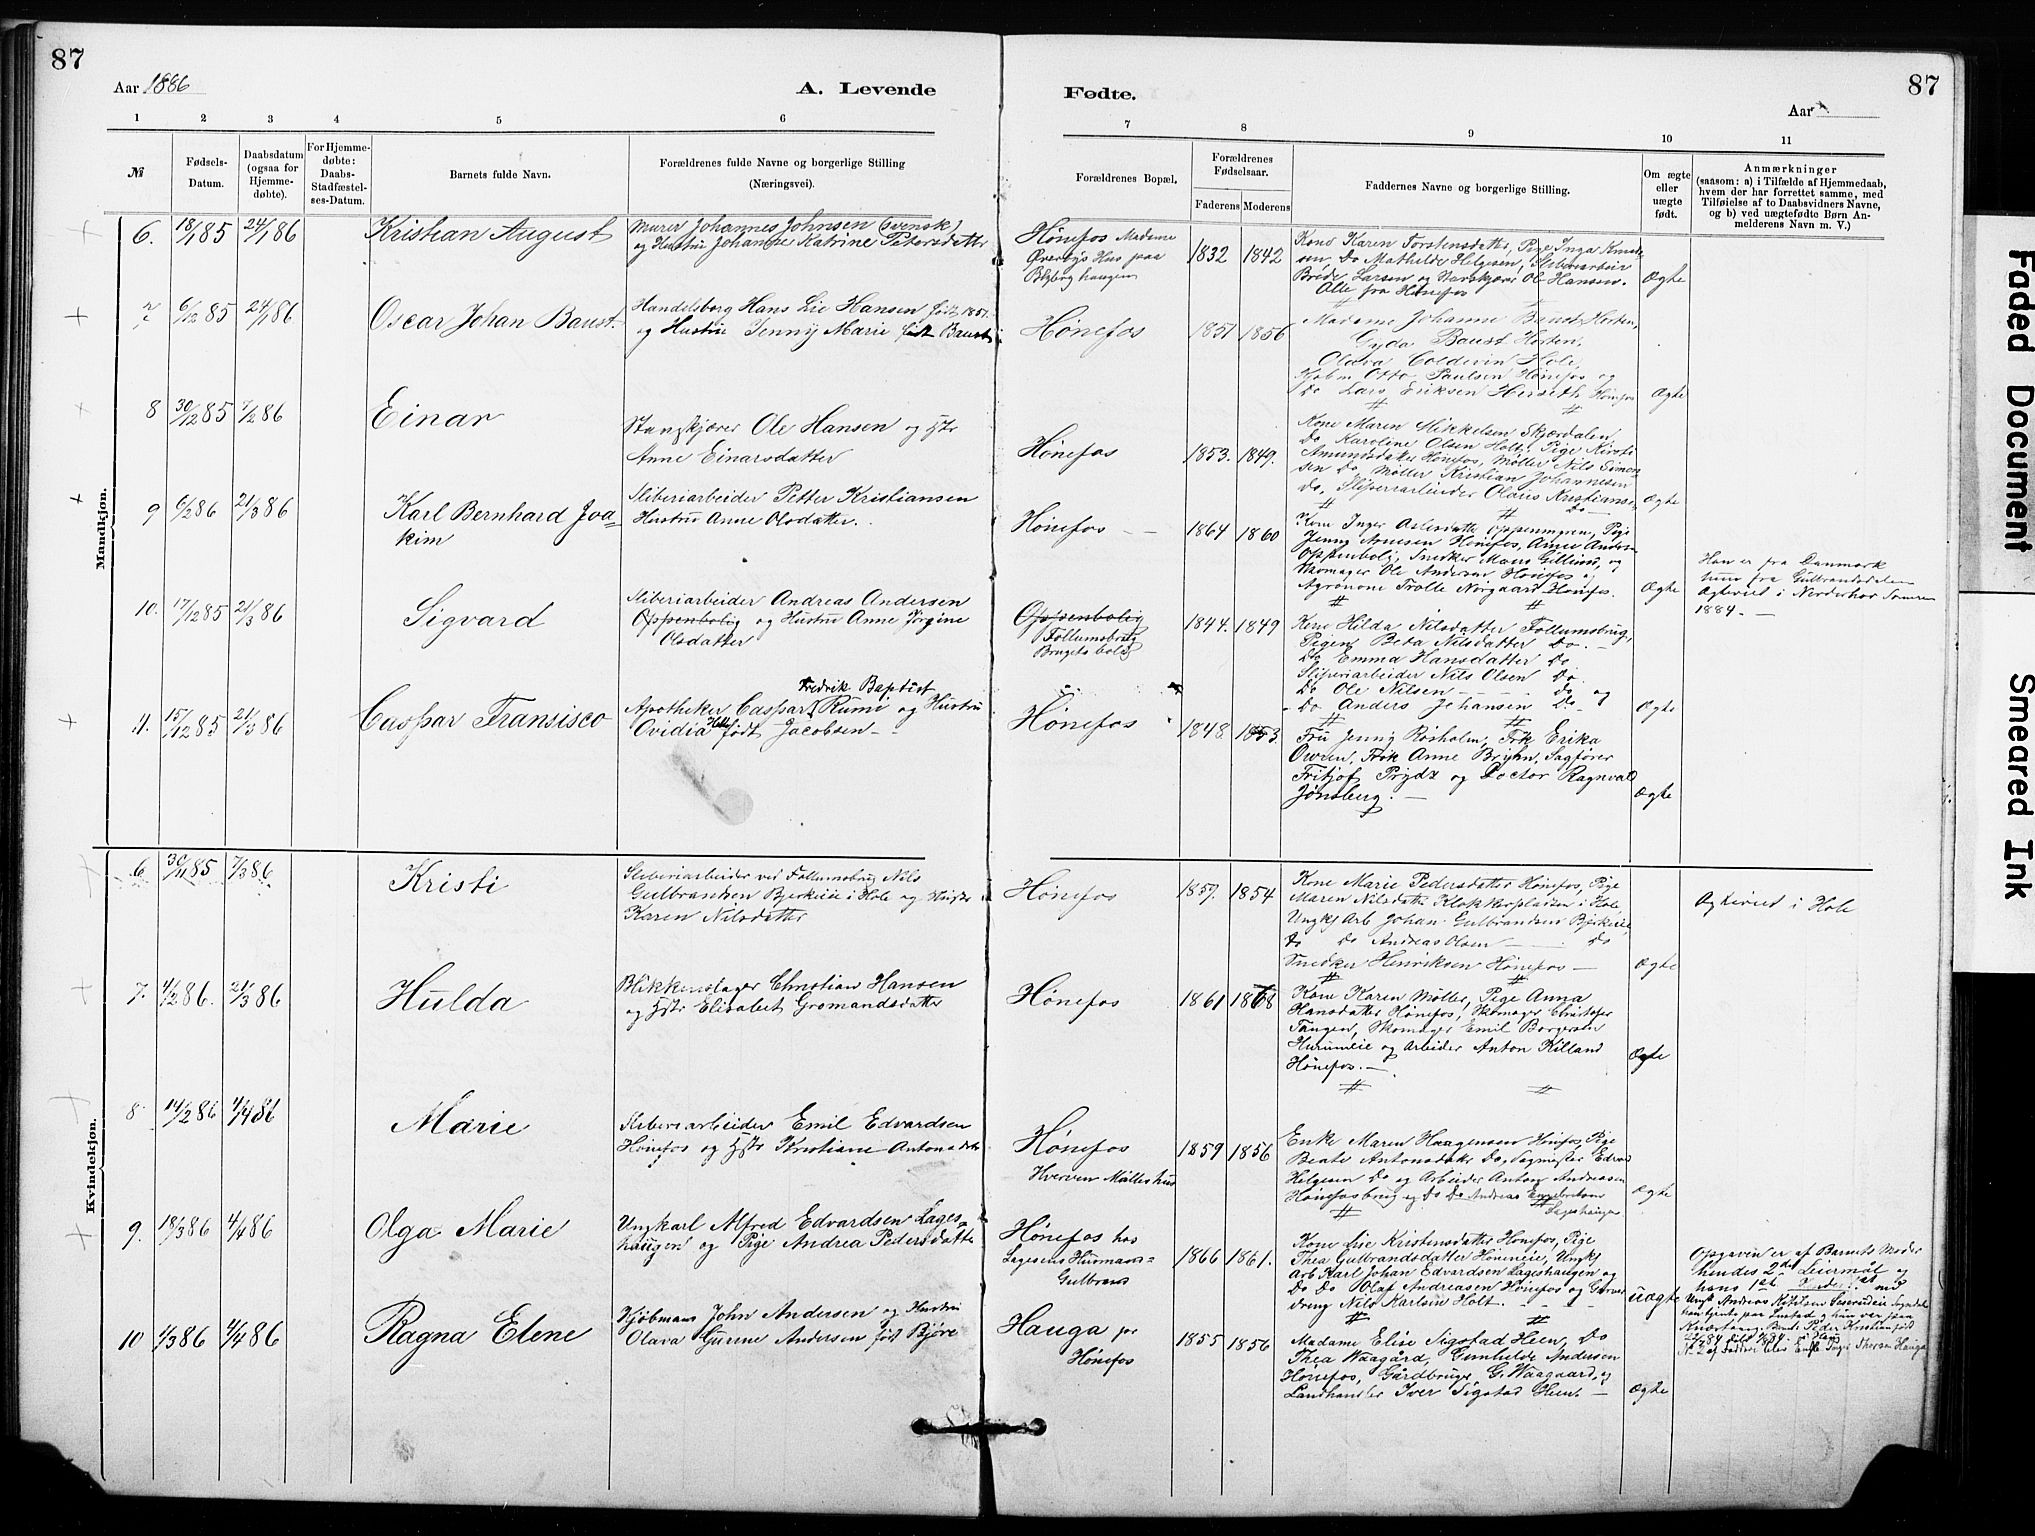 87
87
Aar 1886
A. Levende
Fødte.
Aar
1 2 3 4 5 6
7 8 9 10 11
№
Fødsels-
Datum.
Daabsdatum
(ogsaa for
Hjemme-
døbte).
For Hjemme-
døbte:
Daabs-
Stadfæstel-
ses-Datum.
Barnets fulde Navn.
Forældrenes fulde Navne og borgerlige Stilling
(Næringsvei).
Forældrenes Bopæl.
Forældrenes
Fødselsaar.
Faderens Moderens
Faddernes Navne og borgerlige Stilling.
Om ægte
eller
uægte
født.
Anmærkninger
(saasom: a) i Tilfælde af Hjemmedaab,
hvem der har forrettet samme, med
Tilføielse af to Daabsvidners Navne,
og b) ved uægtefødte Børn An-
melderens Navn m. V.)
Mandkjøn.
6. 18/1 85 24/1 86 Kristian August
Murer Johannes Johnsen (svensk)
og Hustru Johanne Katrine Petersdatter
Hønefos Madame
Øverbys Hus paa
1832 1842
Kone Karen Torstensdatter, Pige Inga
Do Mathilde Helgesen, Sliberiarbeider
Larsen og Ole Hansen.
Alle fra Hønefos
Ægte
7. 6/12 85 24/1 86 Oscar Johan Baust
Handelsborg Hans Lie Hansen født 1851
og Hustru Jenny Marie født Baust
Hønefos
1851 1856
Madame Johanne Baust Horten,
Gyda Baust Horten,
Olava Coldevin Hole,
Kobm Otto Paulsen Hønefos og
Do Lars Eriksen Hønefos
Ægte
8 30/12 85 7/2 86 Einar
Stangskjærer Ole Hansen og Hstr
Anne Einarsdatter
Hønefos
1853. 1849.
Kone Maren Mikkelsen Skjærdalen
Do Karoline Olsen Holt, Pige Kirsti
Amundsdatter Hønefos, Møller Nils Simon
sen Do, Møller Kristian Johannesen
Do, Sliperiarbeider Olaus Kristiansen
Do
Ægte
9 6/2 86 21/3 86 Karl Bernhard Joa-
kim
Sliberiarbeider Petter Kristiansen
Hustru Anne Olsdatter.
Hønefos
1864 1860
Kone Inger Aslesdatter Oppenmyren, Pige
Jenny Arnesen Hønefos, Anne Anders
Oppenbolig, Snedker Mons Gillund, og
Skomager Ole Andersen, Hønefos og
Agronom Trolle Nørgaard Hønefos.
Ægte
Han er fra Danmark
hun fra Gulbrandsdalen
Ægteviet i Norderhov Sommer
1884.
10. 17/12 85 21/3 86 Sigvard
Sliberiarbeider Andreas Andersen
Oppenbolig og Hustru Anne Jørgine
Olsdatter
Oppenbolig
Follumsbrug
Brugets bolig
1844. 1849
Kone Hilda Nilsdatter Follumsbrug,
Pigen Beta Nilsdatter Do.
Do Emma Hansdatter Do
Sliperiarbeider Nils Olsen Do
Do Ole Nilsen Do og
Do Anders Johansen Do
Ægte
11. 15/12 85 21/3 86 Caspar Fransisco
Fredrik Baptist
Apotheker Caspar Rumi og Hustru
Ovidia født Jacobsen
Hønefos
1848. 1853.
Fru Jenny Rosholm, Frk Erika
Owren, Frøk Anne Bryhn, Sagfører
Fritjof Prydz og Doctor Ragnvald
Jønsberg.
Ægte
Kvindekjøn.
6 30/11 85 7/3 86 Kristi
Sliberiarbeider ved Follumsbrug Nils
Gulbrandsen Bjerkeie i Hole og Hustru
Karen Nilsdatter
Hønefos
1859. 1854
Kone Marie Pedersdatter Hønefos, Pige
Maren Nilsdatter Klokkerpladsen i Hole
Ungk Arb Johan Gulbrandsen Bjerkeie,
Do Do Andreas Olsen Do
Snedker Henriksen Hønefos
Ægte
Ægteviet i Hole
7. 4/2 86. 21/3 86 Hulda
Blikkenslager Christian Hansen
og Hstr Elisabet Gromandsdatter
Hønefos
1861 1868
Kone Karen Møller, Pige Anna
Hansdatter Hønefos, Skomager Christofer
Tangen, Skomager Emil Borgersen
Hurumeie og Arbeider Anton Killand
Hønefos.
Ægte
8 14/2 86 4/4 86 Marie
Sliberiarbeider Emil Edvardsen
Hønefos og Hstr Kristiane Antonsdatter
Hønefos
Hverven Møllershus
1859 1856
Enke Maren Haagensen Hønefos, Pige
Beate Antonsdatter Do, Sagmester Edvard
Helgesen Do og Arbeider Anton Andreasen
Hønefosbrug og Do Do Andreas Engebretsen
Lageshaugen
Ægte
9. 18/3 86 4/4 86 Olga Marie
Ungkarl Alfred Edvardsen Lages-
haugen og Pige Andrea Pedersdatter
Hønefos hos
Lagesens Husmand
Gulbrand
1866 1861.
Kone Lise Kristensdatter Hønefos, Pige
Thea Gulbrandsdatter Høneneie, Ungk
Arb Karl Johan Edvardsen Lageshaugen og
Do Do Olaf Andreasen Hønefos og
dreng Nils Karlsen Holt.
uægte
Opgaven er af Barnets Moder
hendes 2det Leiermål og
hans 1st
10 1/3 86 4/4 86 Ragna Elene
Kjøbmand John Andersen og Hustru
Olava Gurine Andersen født Bjøre
Hauga pr
Hønefos
1855 1856
Madame Elise Sigstad Heen, Do
Thea Waagård, Gunhilde Andersen
Hønefos, Gårdbruger G. Waagaard, og
Landhandler Iver Sigstad Heen
Ægte
Faded Document
Smeared Ink